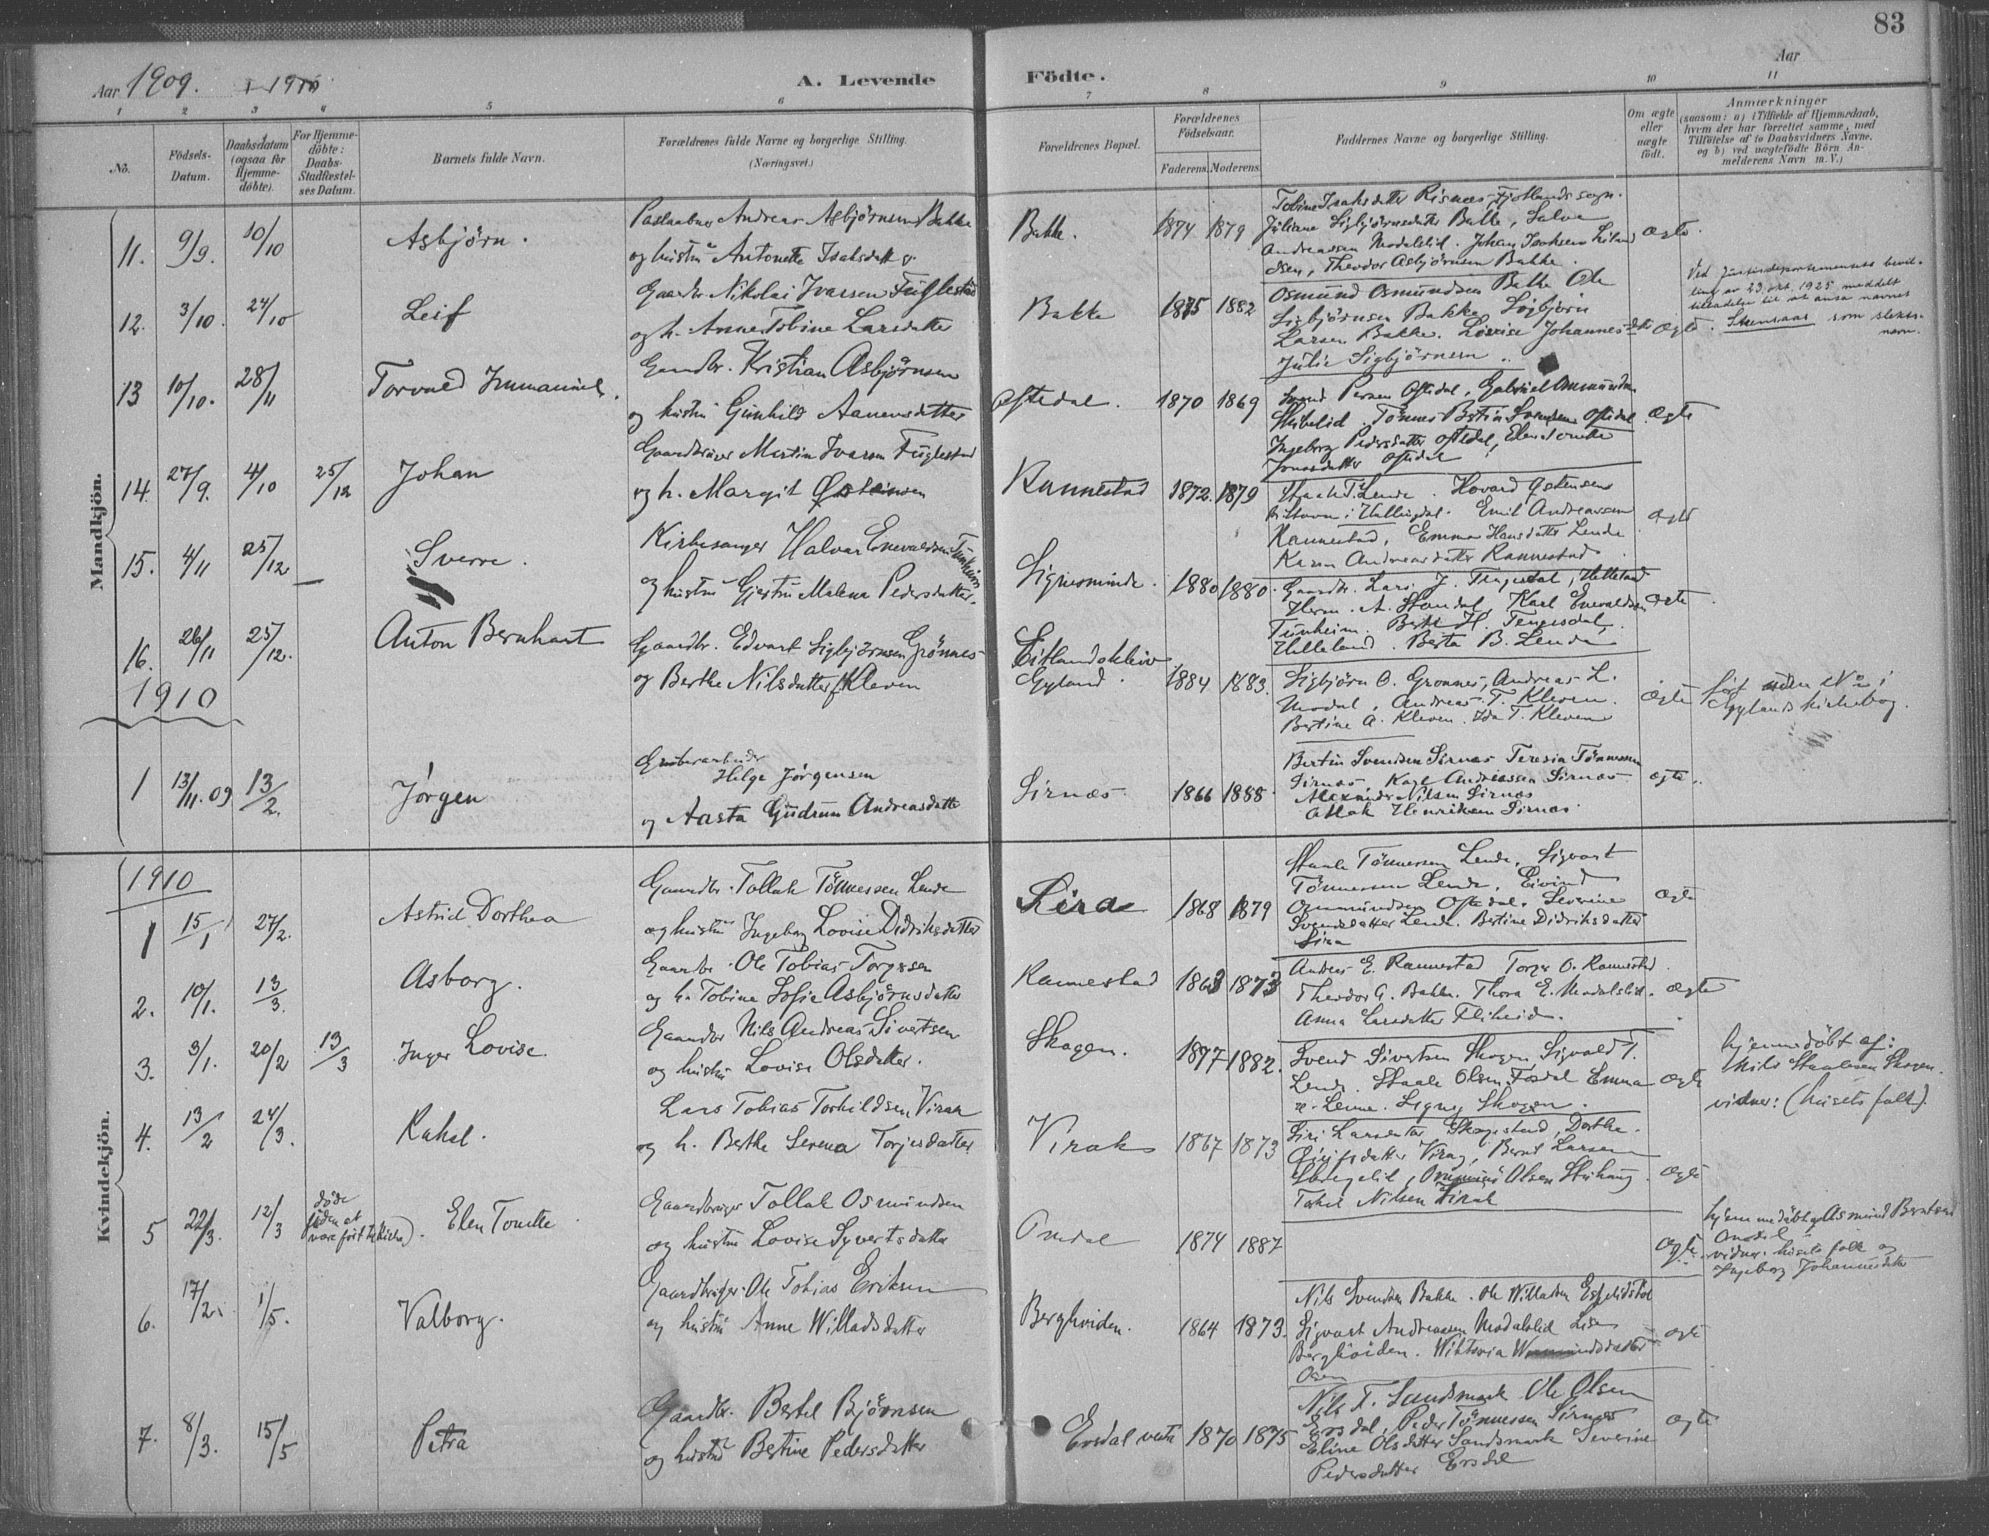 83
Aar 1909. 1910
A. Levende Födte.
Aar
1 2 3 4 5 6 7 8 9 10 11
No.
Födsels-Datum.
Daabsdatum (ogsaa for Hjemmedöbte).
For Hjemmedöbte: Daabs-Stadfæstelses Datum.
Barnets fulde Navn.
Forældrenes fulde Navne og borgerlige Stilling. (Næringsvei.)
Forældrenes Bopæl.
Forældrenes Födselsaar.
Faderens. Moderens.
Faddernes Navne og borgerlige Stilling.
Om ægte eller uægte födt.
Anmærkninger
(saasom: a) i Tilfælde af Hjemmedaab, hvem der har forrettet samme, med Tilföielse af to Daabsvidners Navne, og b) ved uægtefödte Börn Anmelderens Navn m. V.)
Mandkjön.
11. 9/9. 10/10 Asbjörn.
Andreas Asbjörnsen Bakke
og hustru Antonette Isaksdatter
Bakke. 1874 1879
Tobine Isaksdatter Risnes, Fjotlands sogn.
Juliane Sigbjörnsdatter Bakke, Salve
Andreassen Modalslid. Johan Isaksen
Theodor Asbjörnsen Bakke.
Ægte.
12. 3/10. 24/10 Leif
Gaardbr. Nikolai Ivarsen Fuglestad
og h. Anne Tobine Larsdatter
Bakke 1875 1882
Osmund Osmundsen Bakke Ole
Sigbjörnsen Bakke, Sigbjörn
Larsen Bakke. Lovise Johannesdtr
Julie Sigbjörnsen
Ægte.
Ved Justisdepartementets bevilling av 23. okt. 1925 meddelt
tilladelse til at anta navnet
Stensaas som slektsnavn.
13 10/10. 28/11 Torvald Immanuel.
Gaardbr. Kristian Asbjörnsen
og hustru Gunhild Aanensdatter
Oftedal. 1870 1869
Svend Persen Oftedal, Gabriel Ommundsen
Skibelid, Tönnes Bertin Svendsen Oftedal
Ingeborg Pedersdatter Oftedal, Elen Tonette
Jonasdatter Oftedal
Ægte
14. 27/9. 4/10 25/12 Johan
Gaardbruger Martin Ivarsen Fuglestad
og h. Margit Østensen
Rannestad 1872. 1879
Staale T. Lende. Hovard Østensen
Hallingdal. Emil Andreassen
Rannestad, Emma Hansdatter Lende
Karen Andreasdatter Rannestad
ægte
15. 4/11 25/12 Sverre.
Kirkesanger Halvar Enevaldsen Tunheim
og hustru Gjertru Malena Pedersdatter.
Signesminde. 1880 1880.
Gaardbr. Lars J. Tengesdal, Helleland
Herm. A. Stendal, Karl Enevaldsen
Tunheim. Berte H. Tengesdal,
Helleland. Berta B. Lende
Ægte
16. 26/11 25/12. Anton Bernhart
Gaardbr. Edvart Sigbjörnsen Grönnes
og Berthe Nilsdatter f. Kleven
Eitlandskleiv
Gyland. 1884 1883.
Sigbjörn O. Gronnes, Andreas L.
Modal, Andreas T. Kleven.
Bertine A. Kleven. Ida T. Kleven
ægte
fört uden No i
Gylands kirkebog.
1910
1 13/11. 09 13/2. Jörgen
Grubearbeider
Helge Jörgensen
og Aasta Gudrun Andreasdatter
Sirnæs 1866 1888
Bertin Svendsen Sirnæs Teresia Tönnessen
Sirnæs. Karl Andreassen Sirnæs
Alexander Nilsen Sirnæs
Aslak Henriksen Sirnæs
ægte
Kvindekjön.
1910
1 15/1 27/2. Astrid Dorthea
Gaardbr. Tollak Tönnessen Lende
og hustru Ingeborg Lovise Didriksdatter
Sira 1868 1879
Staale Tönnessen Lende, Sigvart
Tönnessen Lende, Eivind
Ommundsen Oftedal. Severine
Svendsdatter Lende. Bertine Didriksdatter
Sira
Ægte
2. 10/1. 13/3. Asborg.
Gaardbr. Ole Tobias Torgesen
og h. Tobine Sofie Asbjörnsdatter
Rannestad 1863 1873
Anders E. Rannestad Torger O. Rannestad.
Theodor A. Bakke. Thora E. Modalslid.
Anna Larsdatter
ægte
3. 3/1. 20/2 13/3 Inger Lovise
Gaardbr Nils Andreas Sivertsen
og hustru Lovise Olsdatter.
Skogen. 1877 1882.
Svend Sivertsen Skogen, Sigvald T.
Lende. Staale Olsen Fosdal Emma
Lende. Signe Skogen.
Ægte
hjemmedöbt af:
Nils Staalesen Skogen.
vidner: (husets folk).
4. 13/2 24/3. Rakel.
Lars Tobias Torkildsen Virak
og h. Berthe Serena Torjesdatter
Virak 1867 1873
Siri Larsdatter Skogestad, Dorthe.
Virag, Bernt Larsen
Olsen
Torkel Nilsen Virak
Ægte
5 22/3. 12/3 döde
Elen Tonette
Gaardbruger Tollak Osmundsen
og hustru Lovise Syvertsdatter
Omdal 1874 1887
Ægte.
hjemmedöbt af Asmund Berntsen
Omdal
vidner: husets folk og
Ingeborg Johannesdatter
6. 17/2. 1/5. Valborg.
Gaardbruger Ole Tobias Eriksen
og hustru Anne Willadsdatter
Berghviden. 1864 1873.
Nils Svendsen Bakke. Ole Willadsen
Sigvart Andreassen Modalslid Lise
Berghviden. Wiktoria
Osen
ægte
7. 8/3. 15/5 Petra
Gaardbr. Bertel Björnsen
og hustru Bertine Pedersdatter
Ersdal vestre 1870 1875
Nils T. Sandsmark Ole Olsen
Ersdal, Peder Tönnessen Sirnæs
Eline Olsdatter Sandsmark Severine
Pedersdatter Ersdal
ægte